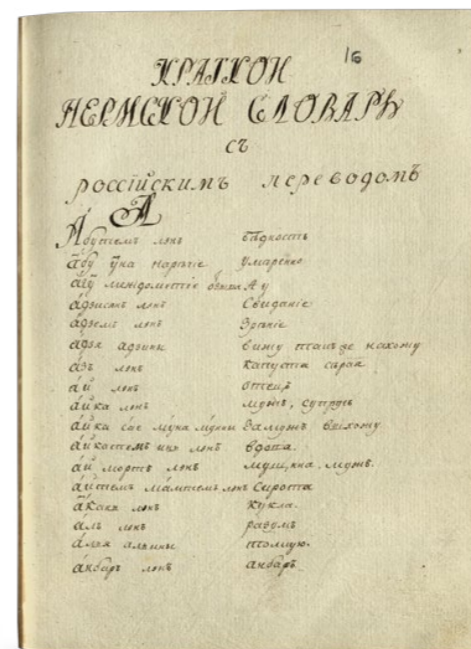 16
КРАТКОЙ
ПЕРМСКОЙ СЛОВАРЬ
съ
россійскимъ переводомъ
А
Абутемъ лонъ бѣдность
абу уна нарѣчіе умаренно
ау Ау
адзисянъ лонъ Свиданіе
адземъ лонъ Зрѣніе
адзя адзины вижу также нахожу
азь лонъ капуста сѣрая
ай лонъ отецъ
айка лонъ мужъ, супругъ
айка сае муна мунны Замужъ выхожу
айкатемъ инь лонъ вдова.
ай мортъ лонъ мущина. мужъ.
айтемъ мамтемъ лонъ Сирота
акань лонъ кукла.
аль лонъ разумъ
алья альины толкую.
анбаръ лонъ анбаръ